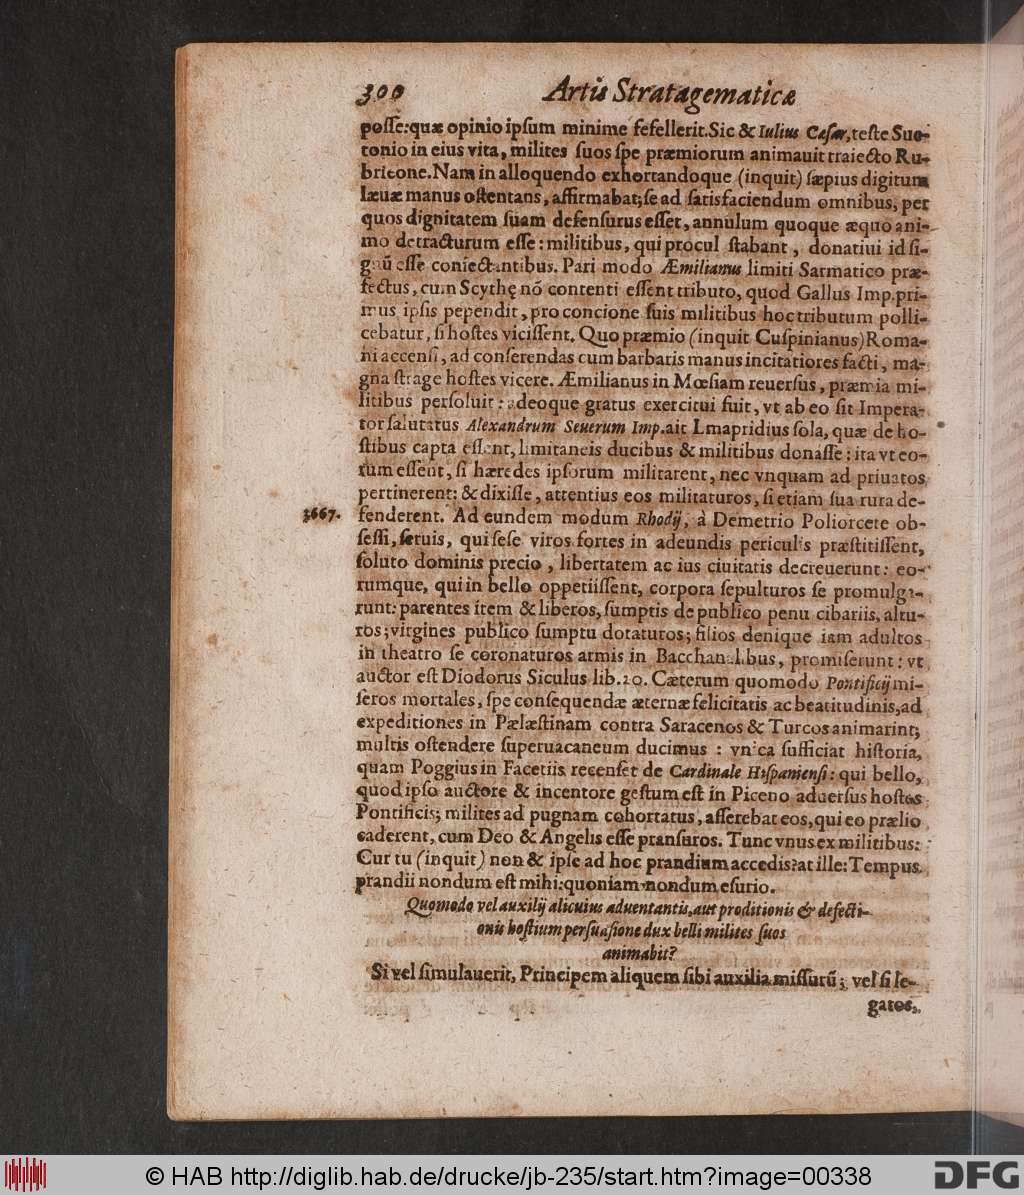 300 Artis Stratagematicæ
posse: quæ opinio ipsum minime fefellerit. Sic & Iulius Cæsar, teste Sue-
tonio in eius vita, milites suos spe præmiorum animauit traiecto Ru-
bricone. Nam in alloquendo exhortandoque (inquit) sæpius digitum
læuæ manus ostentans, affirmabat; se ad satisfaciendum omnibus, per
quos dignitatem suam defensurus esset, annulum quoque æquo ani-
mo detracturum esse: militibus, qui procul stabant, donatiui id si-
gnū esse coniectantibus. Pari modo Æmilianus limiti Sarmatico præ-
fectus, cum Scythę nō contenti essent tributo, quod Gallus Imp. pri-
mus ipsis pependit, pro concione suis militibus hoc tributum polli-
cebatur, si hostes vicissent. Quo præmio (inquit Cuspinianus) Roma-
ni accensi, ad conserendas cum barbaris manus incitatiores facti, ma-
gna strage hostes vicere. Æmilianus in Mœsiam reuersus, præmia mi-
litibus persoluit: adeoque gratus exercitui fuit, vt ab eo sit Impera-
tor salutatus Alexandrum Seuerum Imp. ait Lmapridius sola, quæ de ho-
stibus capta essent, limitaneis ducibus & militibus donasse: ita vt eo-
rum essent, si hæredes ipsorum militarent, nec vnquam ad priuatos
pertinerent: & dixisse, attentius eos militaturos, si etiam sua rura de-
3667. fenderent. Ad eundem modum Rhodij, à Demetrio Poliorcete ob-
sessi, seruis, qui sese viros fortes in adeundis periculis præstitissent,
soluto dominis precio, libertatem ac ius ciuitatis decreuerunt: eo-
rumque, qui in bello oppetiissent, corpora sepulturos se promulga-
runt: parentes item & liberos, sumptis de publico penu cibariis, altu-
ros; virgines publico sumptu dotaturos; filios denique iam adultos
in theatro se coronaturos armis in Bacchanalibus, promiserunt: vt
auctor est Diodorus Siculus lib. 20. Cæterum quomodo Pontificij mi-
seros mortales, spe consequendæ æternæ felicitatis ac beatitudinis, ad
expeditiones in Pælæstinam contra Saracenos & Turcos animarint;
multis ostendere superuacaneum ducimus: vnica sufficiat historia,
quam Poggius in Facetiis recenset de Cardinale Hispaniensi: qui bello,
quod ipso auctore & incentore gestum est in Piceno aduersus hostes
Pontificis; milites ad pugnam cohortatus, asserebat eos, qui eo prælio
caderent, cum Deo & Angelis esse pransuros. Tunc vnus ex militibus:
Cur tu (inquit) non & ipse ad hoc prandium accedis? at ille: Tempus
prandii nondum est mihi: quoniam nondum esurio.
Quomodo vel auxilij alicuius aduentantis, aut proditionis & defecti-
onis hostium persuasione dux belli milites suos
animabit?
Si vel simulauerit, Principem aliquem sibi auxilia missurū; vel si le-
gatos,
© HAB http://diglib.hab.de/drucke/jb-235/start.htm?image=00338
DFG